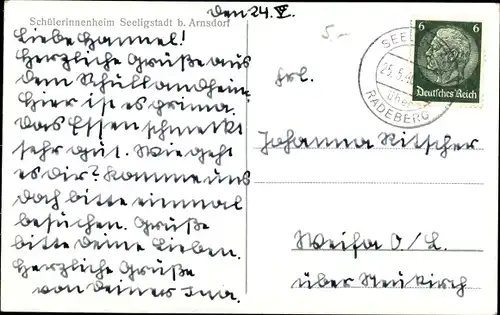 den 24. V.
Schülerinnenheim Seeligstadt b. Arnsdorf
Liebe Hannel!
Herzliche Grüße aus
dem Schullandheim.
Hier ist es prima.
Das Essen schmeckt
sehr gut. Wie geht
es dir? Komme uns
doch bitte einmal
besuchen. Grüße
bitte deine Lieben.
Herzliche Grüße
von deiner Ina.
5.-
6
Deutsches Reich
25.5.
über
RADEBERG
Frl.
Johanna Ritscher
Weifa O/L.
über Neukirch